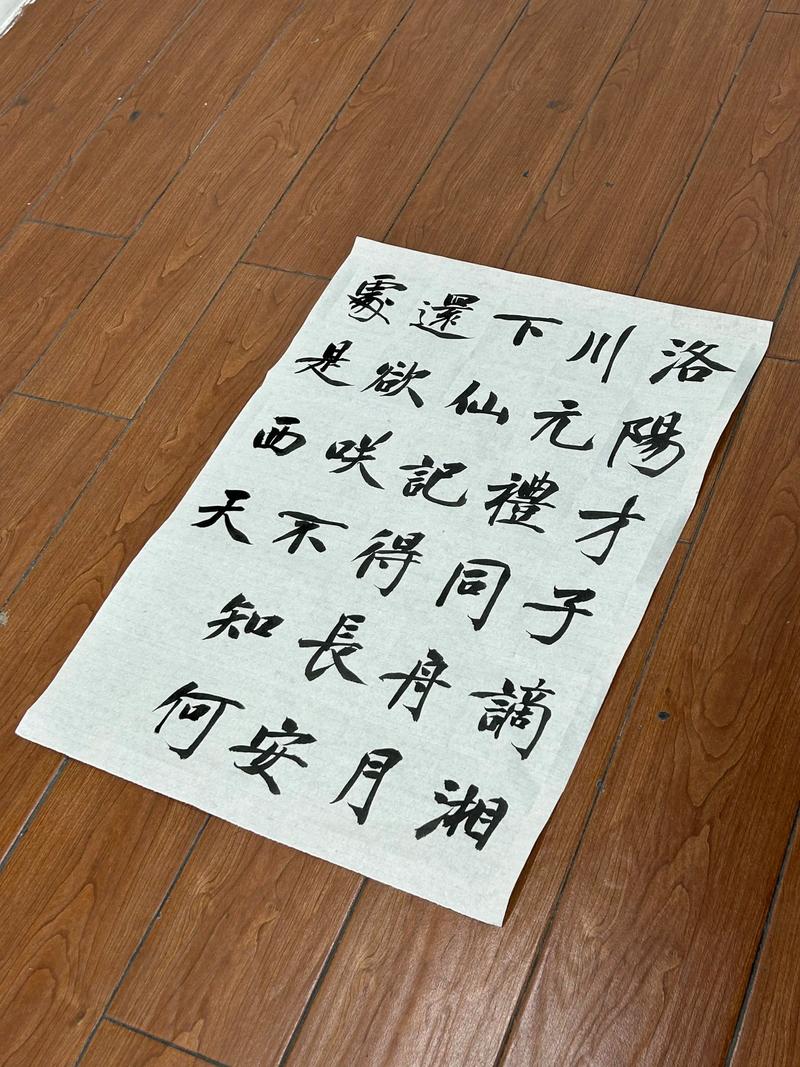 洛陽才子謫湘
川元禮同舟月
下仙記得長安
還欲咲不知何
處是西天